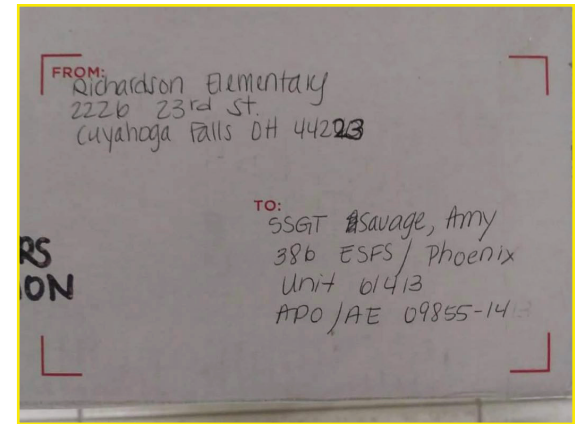 FROM:
Richardson Elementary
2226 23rd St.
Cuyahoga Falls OH 44223
TO:
SSGT Savage, Amy
386 ESFS / Phoenix
Unit 61413
APO / AE 09855-14
RS
ON